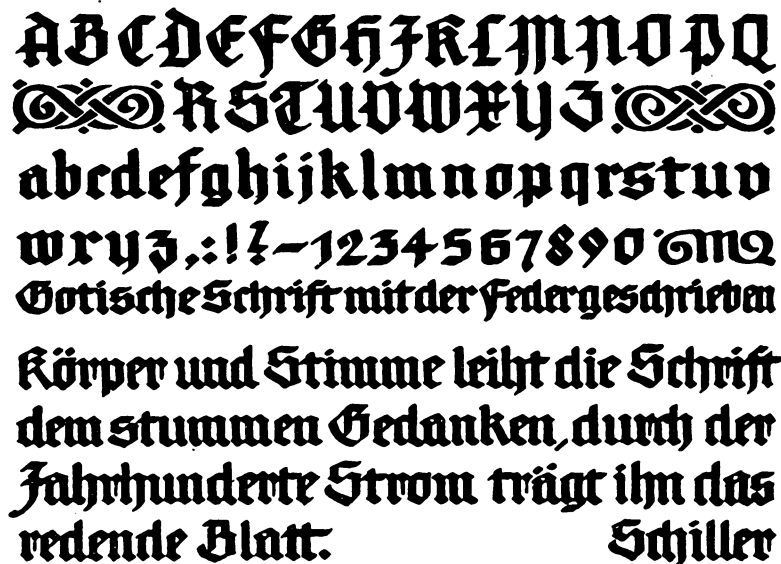 ABCDEFGHJKLMNOPQ
RSTUVWXYZ
abcdefghijklmnopqrstuv
wxyz,.:!?-1234567890
Gotische Schrift mit der Feder geschrieben
Körper und Stimme leiht die Schrift
dem stummen Gedanken, durch der
Jahrhunderte Strom trägt ihn das
redende Blatt. Schiller